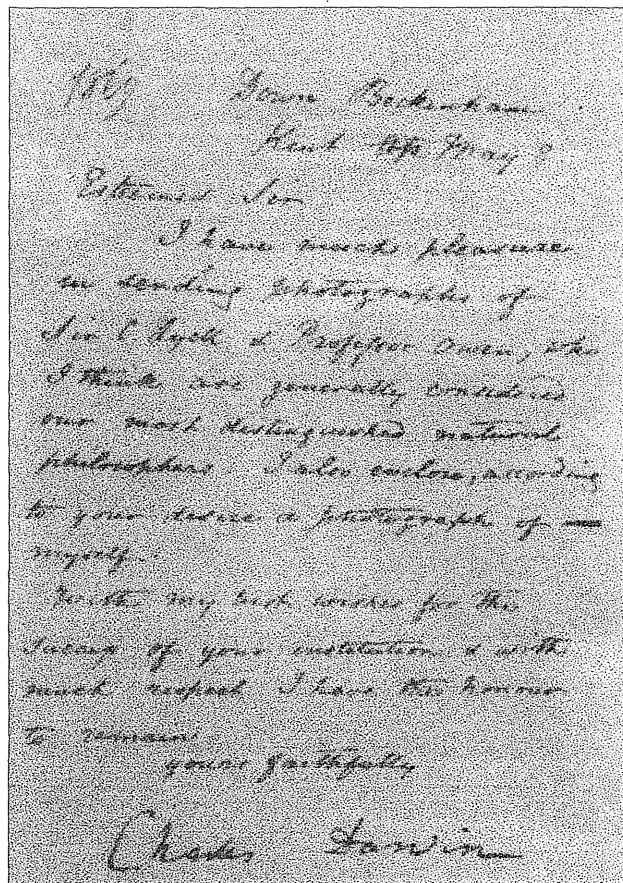 Down Beckenham
Kent May 9
Esteemed Sir
I have much pleasure
in sending photographs of
Sir C Lyell & Professor Owen, who
I think are generally considered
our most distinguished natural
philosophers I also enclose, according
to your desire a photograph of
myself.
With my best wishes for the
success of your institution & with
much respect I have the honour
to remain
yours faithfully
Charles Darwin